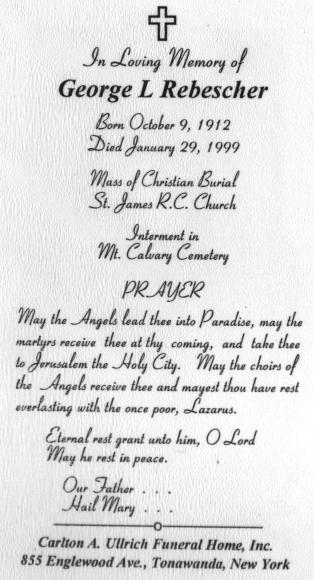 In Loving Memory of
George L Rebescher
Born October 9, 1912
Died January 29, 1999
Mass of Christian Burial
St. James R.C. Church
Interment in
Mt. Calvary Cemetery
PRAYER
May the Angels lead thee into Paradise, may the
martyrs receive thee at thy coming, and take thee
to Jerusalem the Holy City. May the choirs of
the Angels receive thee and mayest thou have rest
everlasting with the once poor, Lazarus.
Eternal rest grant unto him, O Lord
May he rest in peace.
Our Father . . .
Hail Mary . . .
Carlton A. Ullrich Funeral Home, Inc.
855 Englewood Ave., Tonawanda, New York